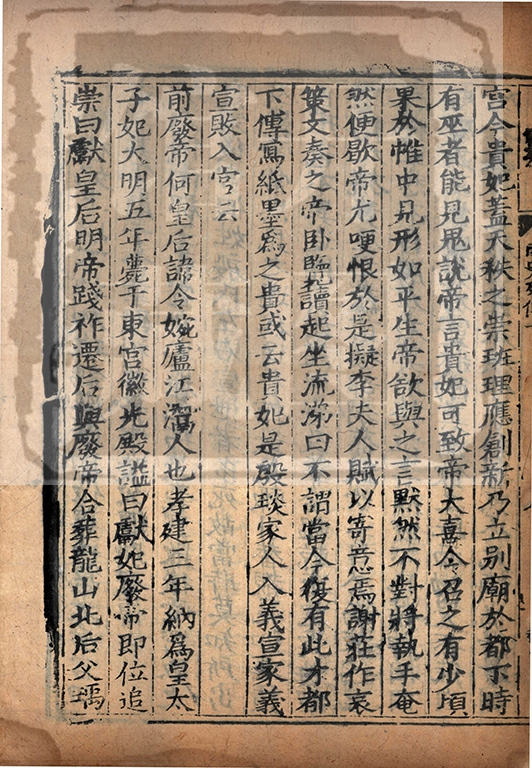 宮今貴妃蓋天秩之崇班理應創新乃立別廟於都下時
有巫者能見鬼說帝言貴妃可致帝大喜令召之有少頃
果於帷中見形如平生帝欲與之言默然不對將執手奄
然便歇帝尤哽恨於是擬李夫人賦以寄意焉謝莊作哀
策文奏之帝臥覽讀起坐流涕曰不謂當今復有此才都
下傳寫紙墨為之貴或云貴妃是殷琰家人入義宣家義
宣敗入宮云
前廢帝何皇后諱令婉廬江灊人也孝建三年納為皇太
子妃大明五年薨于東宮徽光殿諡曰獻妃廢帝即位追
崇曰獻皇后明帝踐祚遷后與廢帝合葬龍山北后父瑀